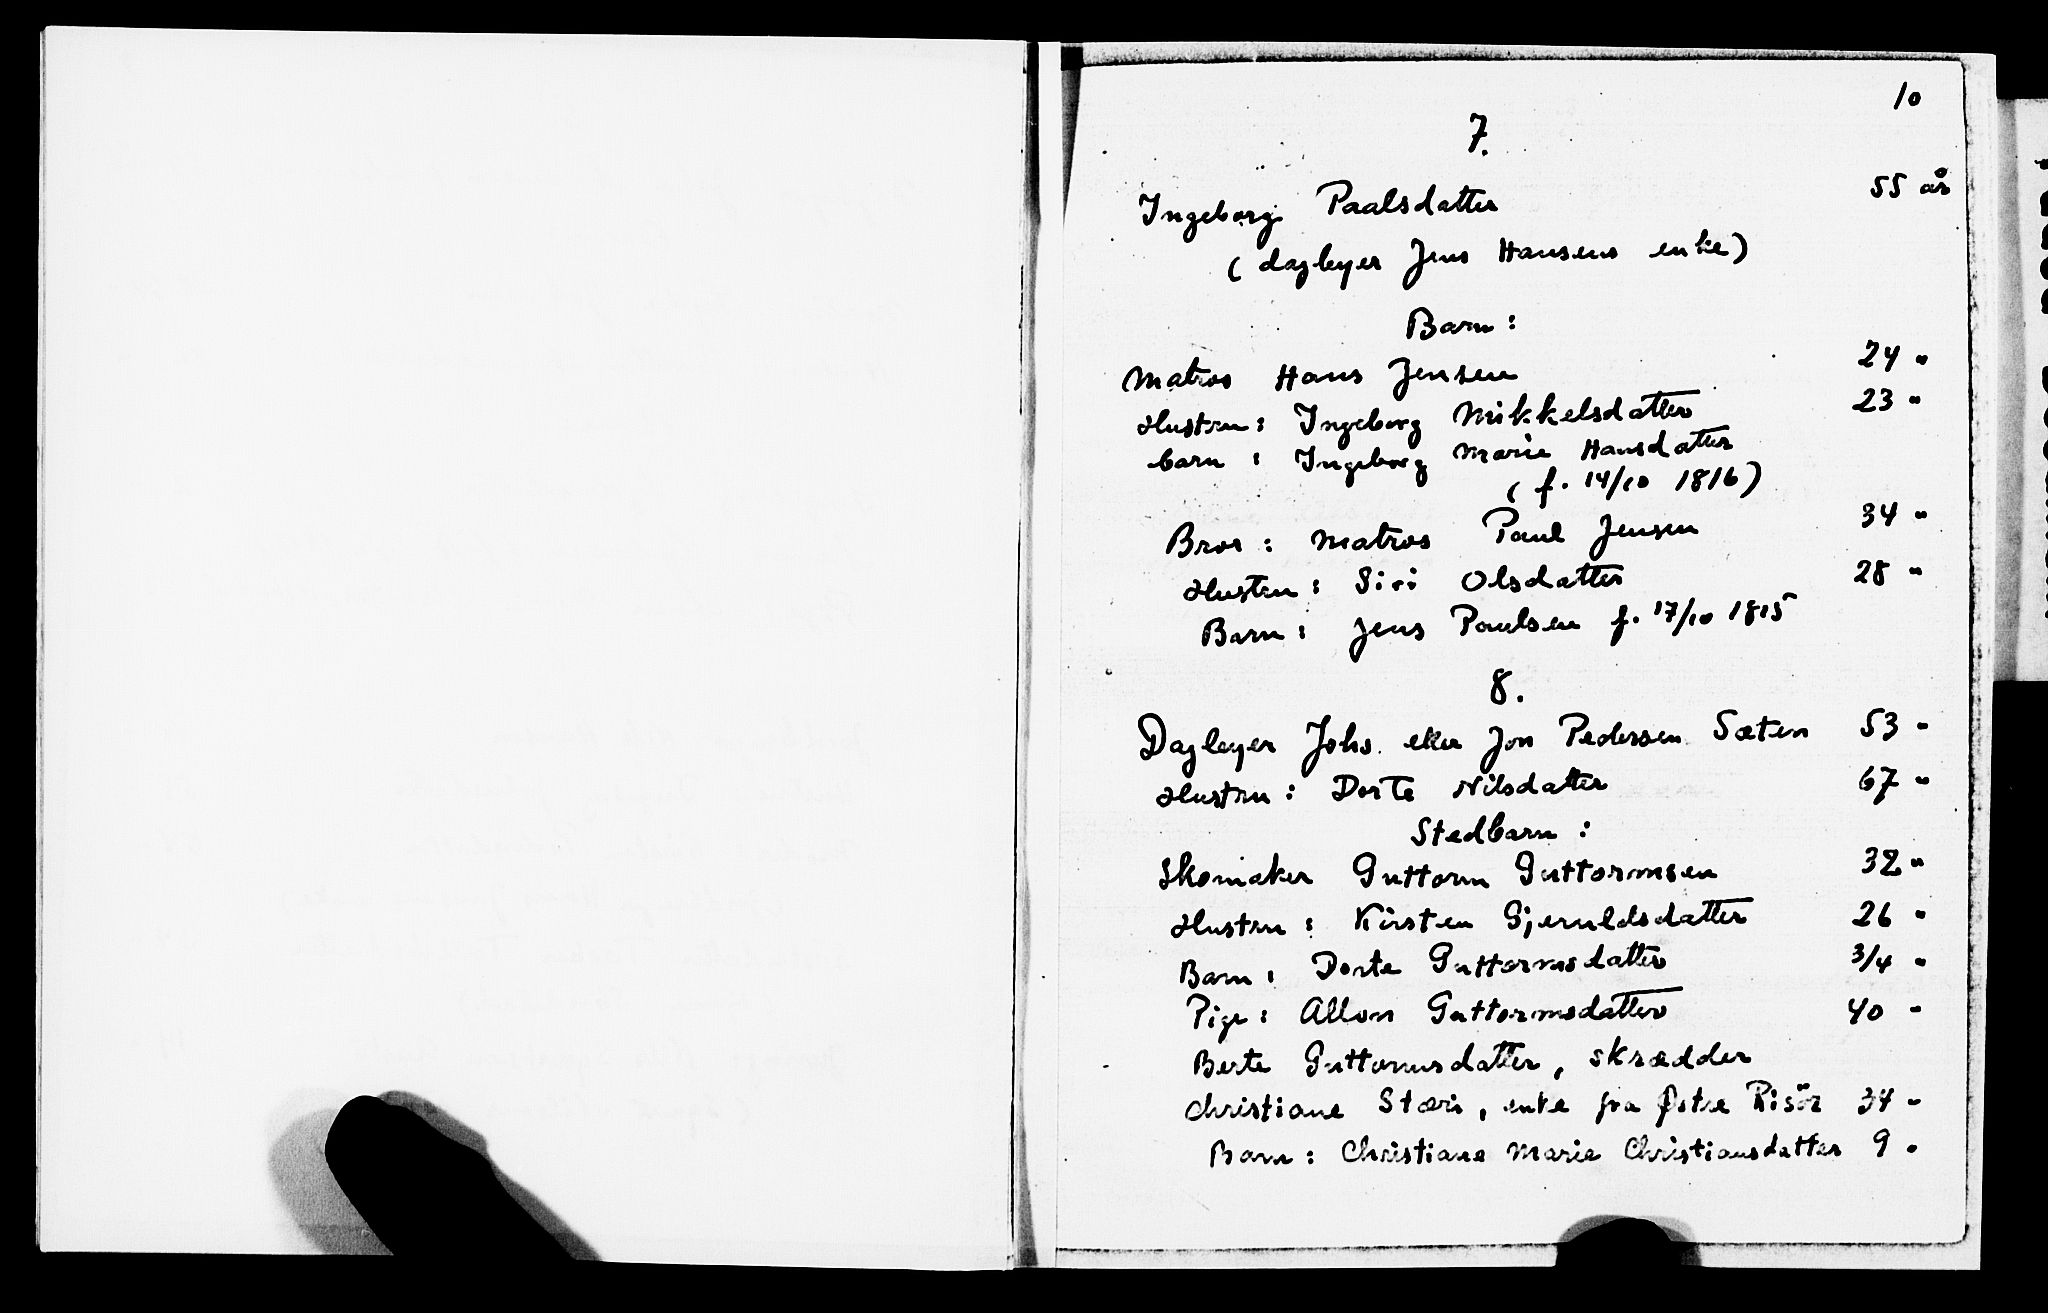 10
7.
Ingeborg Paalsdatter 55 år
(dagleyer Jens Hansens enke)
Barn:
Matros Hans Jensen 24 "
Hustru: Ingeborg Mikkelsdatter 23 "
barn: Ingeborg Marie Hansdatter
(f. 14/10 1816)
Bror: Matros Paul Jensen 34 "
Hustru: Siri Olsdatter 28 "
Barn: Jens Paulsen f. 17/10 1815
8.
Dagleyer Johs. eller Jon Pedersen Sæten 53 "
Hustru: Dorte Nilsdatter 67 "
Stedbarn:
Skomaker Guttorm Guttormsen 32 "
Hustru: Kirsten Gjeruldsdatter 26 "
Barn: Dorte Guttormsdatter 3/4 "
Pige: Allon Guttormsdatter 40 "
Berte Guttormsdatter, skrædder
Christiane Stæri, enke fra Østre Risör 34 "
Barn: Christiane Marie Christiansdatter 9 "